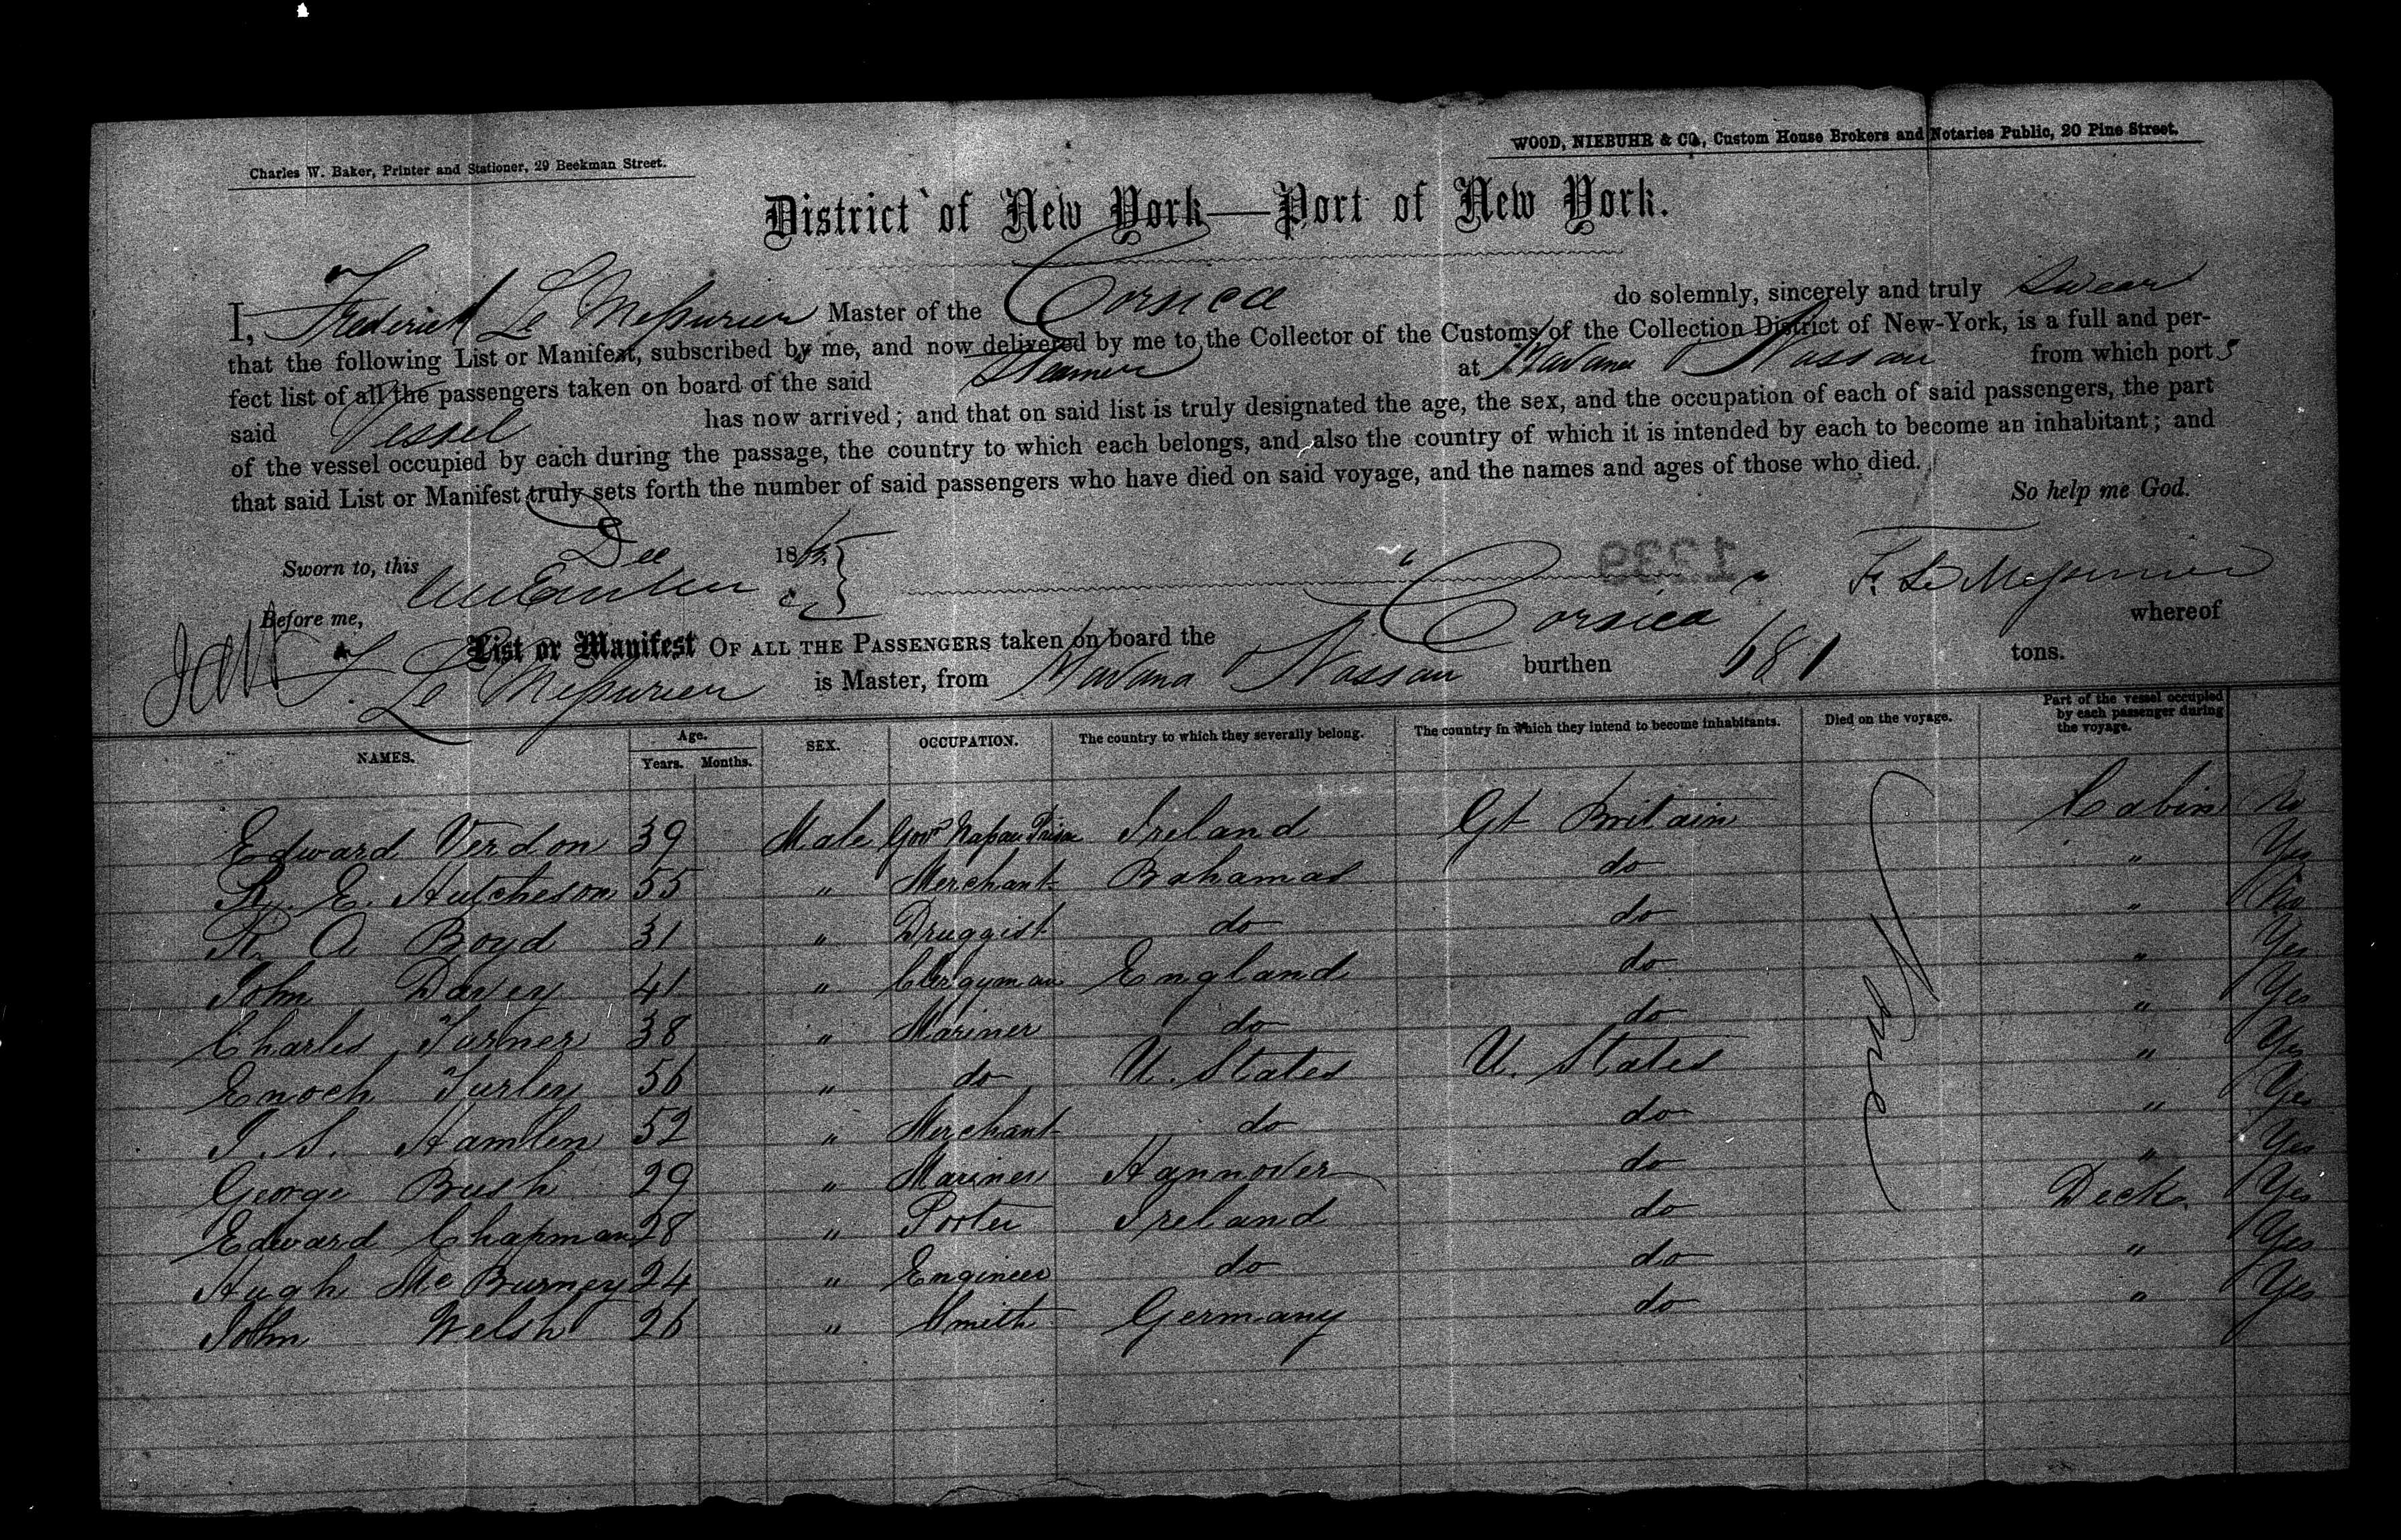 Charles W. Baker, Printer and Stationer, 29 Beekman Street.
WOOD, NIEBUHR & CO., Custom House Brokers and Notaries Public, 20 Pine Street.
District of New York—Port of New York.
I, Frederick Le Messurier Master of the Corsica do solemnly, sincerely and truly Swear
that the following List or Manifest, subscribed by me, and now delivered by me to the Collector of the Customs of the Collection District of New-York, is a full and per-
fect list of all the passengers taken on board of the said Steamer at Havana Nassau from which port s
said Vessel has now arrived; and that on said list is truly designated the age, the sex, and the occupation of each of said passengers, the part
of the vessel occupied by each during the passage, the country to which each belongs, and also the country of which it is intended by each to become an inhabitant; and
that said List or Manifest truly sets forth the number of said passengers who have died on said voyage, and the names and ages of those who died.
So help me God.
Sworn to, this Dec 1865 1239 F. Le Messurier
Before me,
List or Manifest OF ALL THE PASSENGERS taken on board the Corsica whereof
F. Le Messurier is Master, from Havana Nassau burthen 681 tons.
NAMES. Age. Years. Months. SEX. OCCUPATION. The country to which they severally belong. The country in which they intend to become inhabitants. Died on the voyage. Part of the vessel occupied by each passenger during the voyage.
Edward Verdon 39 Male Govr Nassau Prison Ireland Gt Britain Cabin No
R. E. Hutcheson 55 " Merchant Bahamas do " Yes
R. A Boyd 31 " Druggist do do "
John Davey 41 " Clergyman England do " Yes
Charles Turner 38 " Mariner do do " Yes
Enoch Turley 56 " do U. States U. States " Yes
I. S. Hamlen 52 " Merchant do do " Yes
George Bush 29 " Mariner Hannover do " Yes
Edward Chapman 28 " Porter Ireland do Deck Yes
Hugh McBurney 24 " Engineer do do " Yes
John Welsh 26 " Smith Germany do " Yes
None